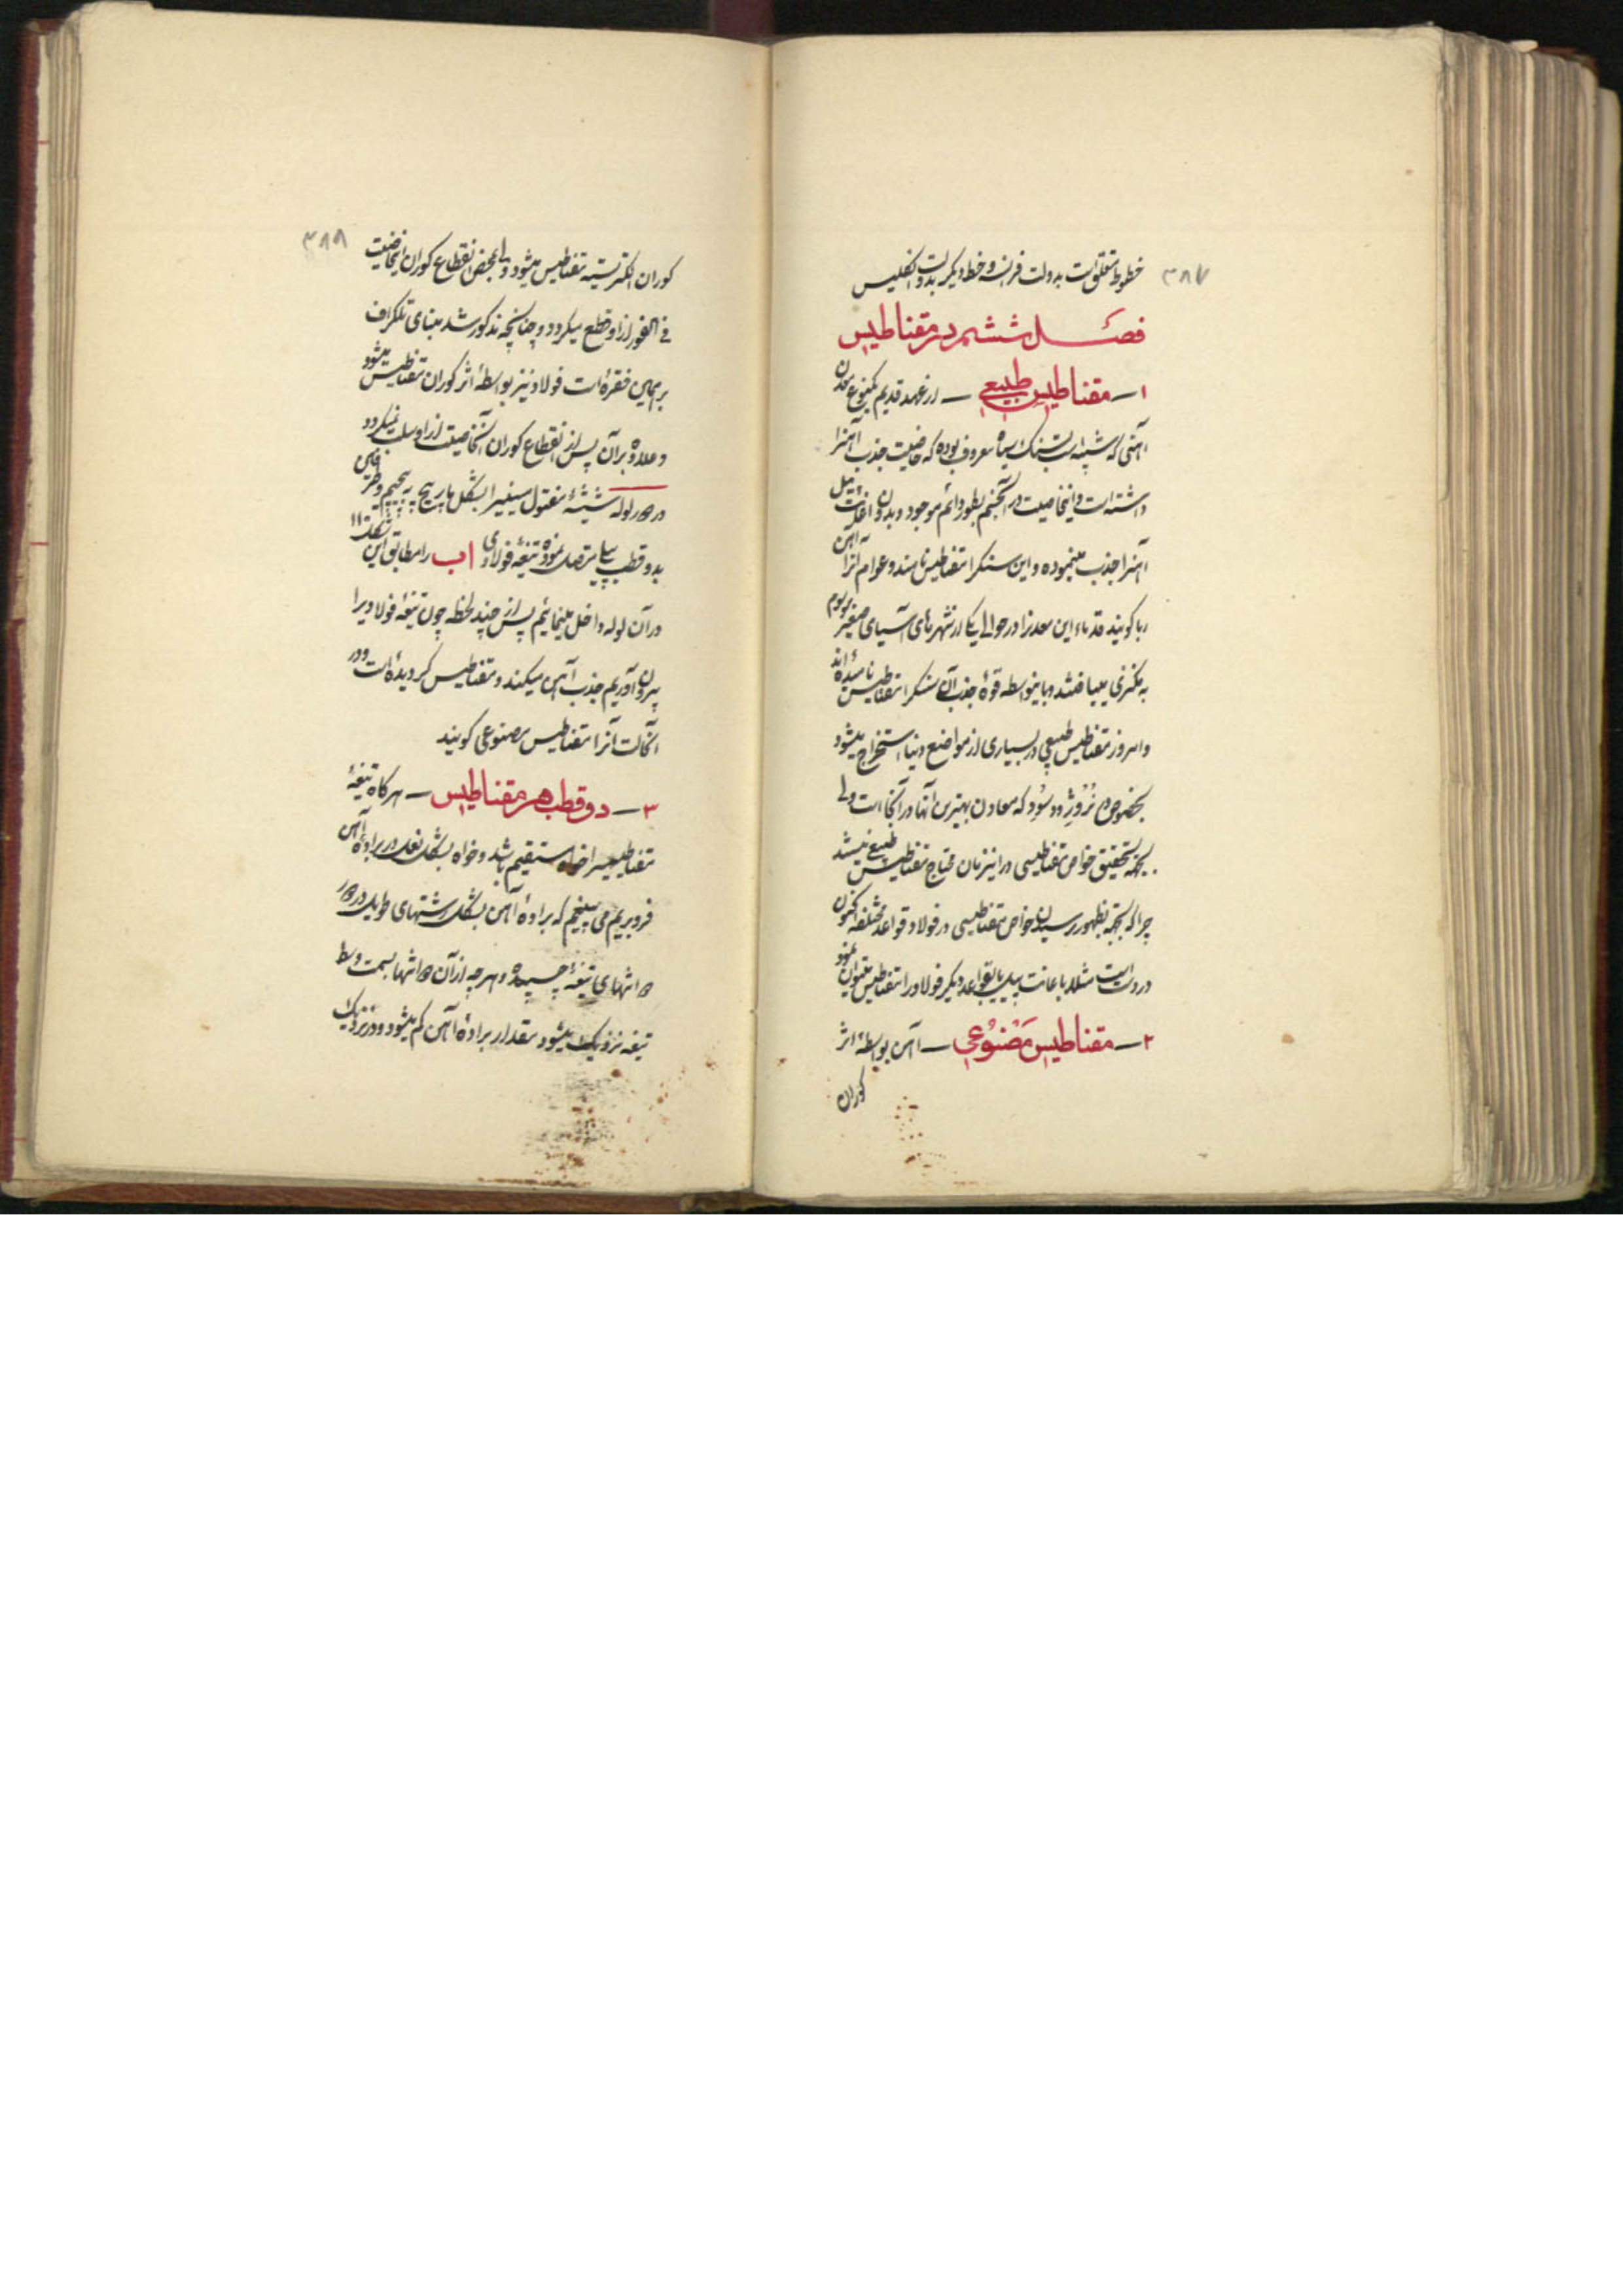 ۳۸۷
خطوط متعلق است بدولت فرانسه و خط دیگر بدولت انگلیس
فصل ششم در مقناطیس
۱ــ مقناطیس طبیعی ــ از عهد قدیم یکنوع معدن
آهنی که شبیه است بسنگ سیاه معروف بوده که خاصیت جذب آهنرا
داشته است و اینخاصیت در آنجسم بطور دائم موجود و بدون اغاثت پیل
آهنرا جذب مینموده و این سنگرا مقناطیس نامند و عوام آنرا آهن
ربا گویند قدماء این معدنرا در حوالی یکی از شهرهای آسیای صغیر موسوم
به مگنزی مییافتند و باینواسطه قوهٔ جذب آن سنگرا مقناطیس نامیده‌اند
و امروز مقناطیس طبیعی در بسیاری از مواضع دنیا استخراج میشود
بخصوص در نُرْوِژ و سُوِد که معادن بهترین آنها در آنجا است ولی
بجهة تحقیق خواص مقناطیسی در اینزمان محتاج مقناطیس طبیعی نیستند
چرا که بجهة بظهور رسیدن خواص مقناطیسی در فولاد قواعد مختلفه اکنون
در دست است مثلا باعانت پیل یا بقواعد دیگر فولاد را مقناطیس میتوان نمود
۲ــ مقناطیس مَصْنوُعی ــ آهن بواسطهٔ اثر
کوران
۳۸۸
کوران الکتریسیته مقناطیس میشود ولی بمحض انقطاع کوران اینخاصیت
فی الفور از او قطع میگردد و چنانچه مذکور شد بنای تلگراف
بر همین فقره است فولاد نیز بواسطهٔ اثر کوران مقناطیس میشود
و علاوه بر آن پس از انقطاع کوران آنخاصیت از او سلب نمیگردد
در دور لوله شیشهٔ مفتول مسینرا بشکل مارپیچ به پیچیم و طرفین
بدو قطب پیل متصل نموده تیغهٔ فولادی اب را مطابق این شکل ۱۱
در آن لوله داخل مینمائیم پس از چند لحظه چون تیغهٔ فولادیرا
بیرون آوریم جذب آهن میکند و مقناطیس گردیده است و در
آنحالت آنرا مقناطیس مصنوعی گویند
۳ــ دو قطب هر مقناطیس ــ هرگاه تیغهٔ
مقناطیسیرا خواه مستقیم باشد و خواه بشکل نعل در برادهٔ آهن
فرو بریم می‌بینیم که برادهٔ آهن بشکل رشتهای طویل در دو
انتهای تیغه چسبیده و هر چه از آن دو انتها بسمت وسط
تیغه نزدیک میشود مقدار برادهٔ آهن کم میشود و در نزدیک